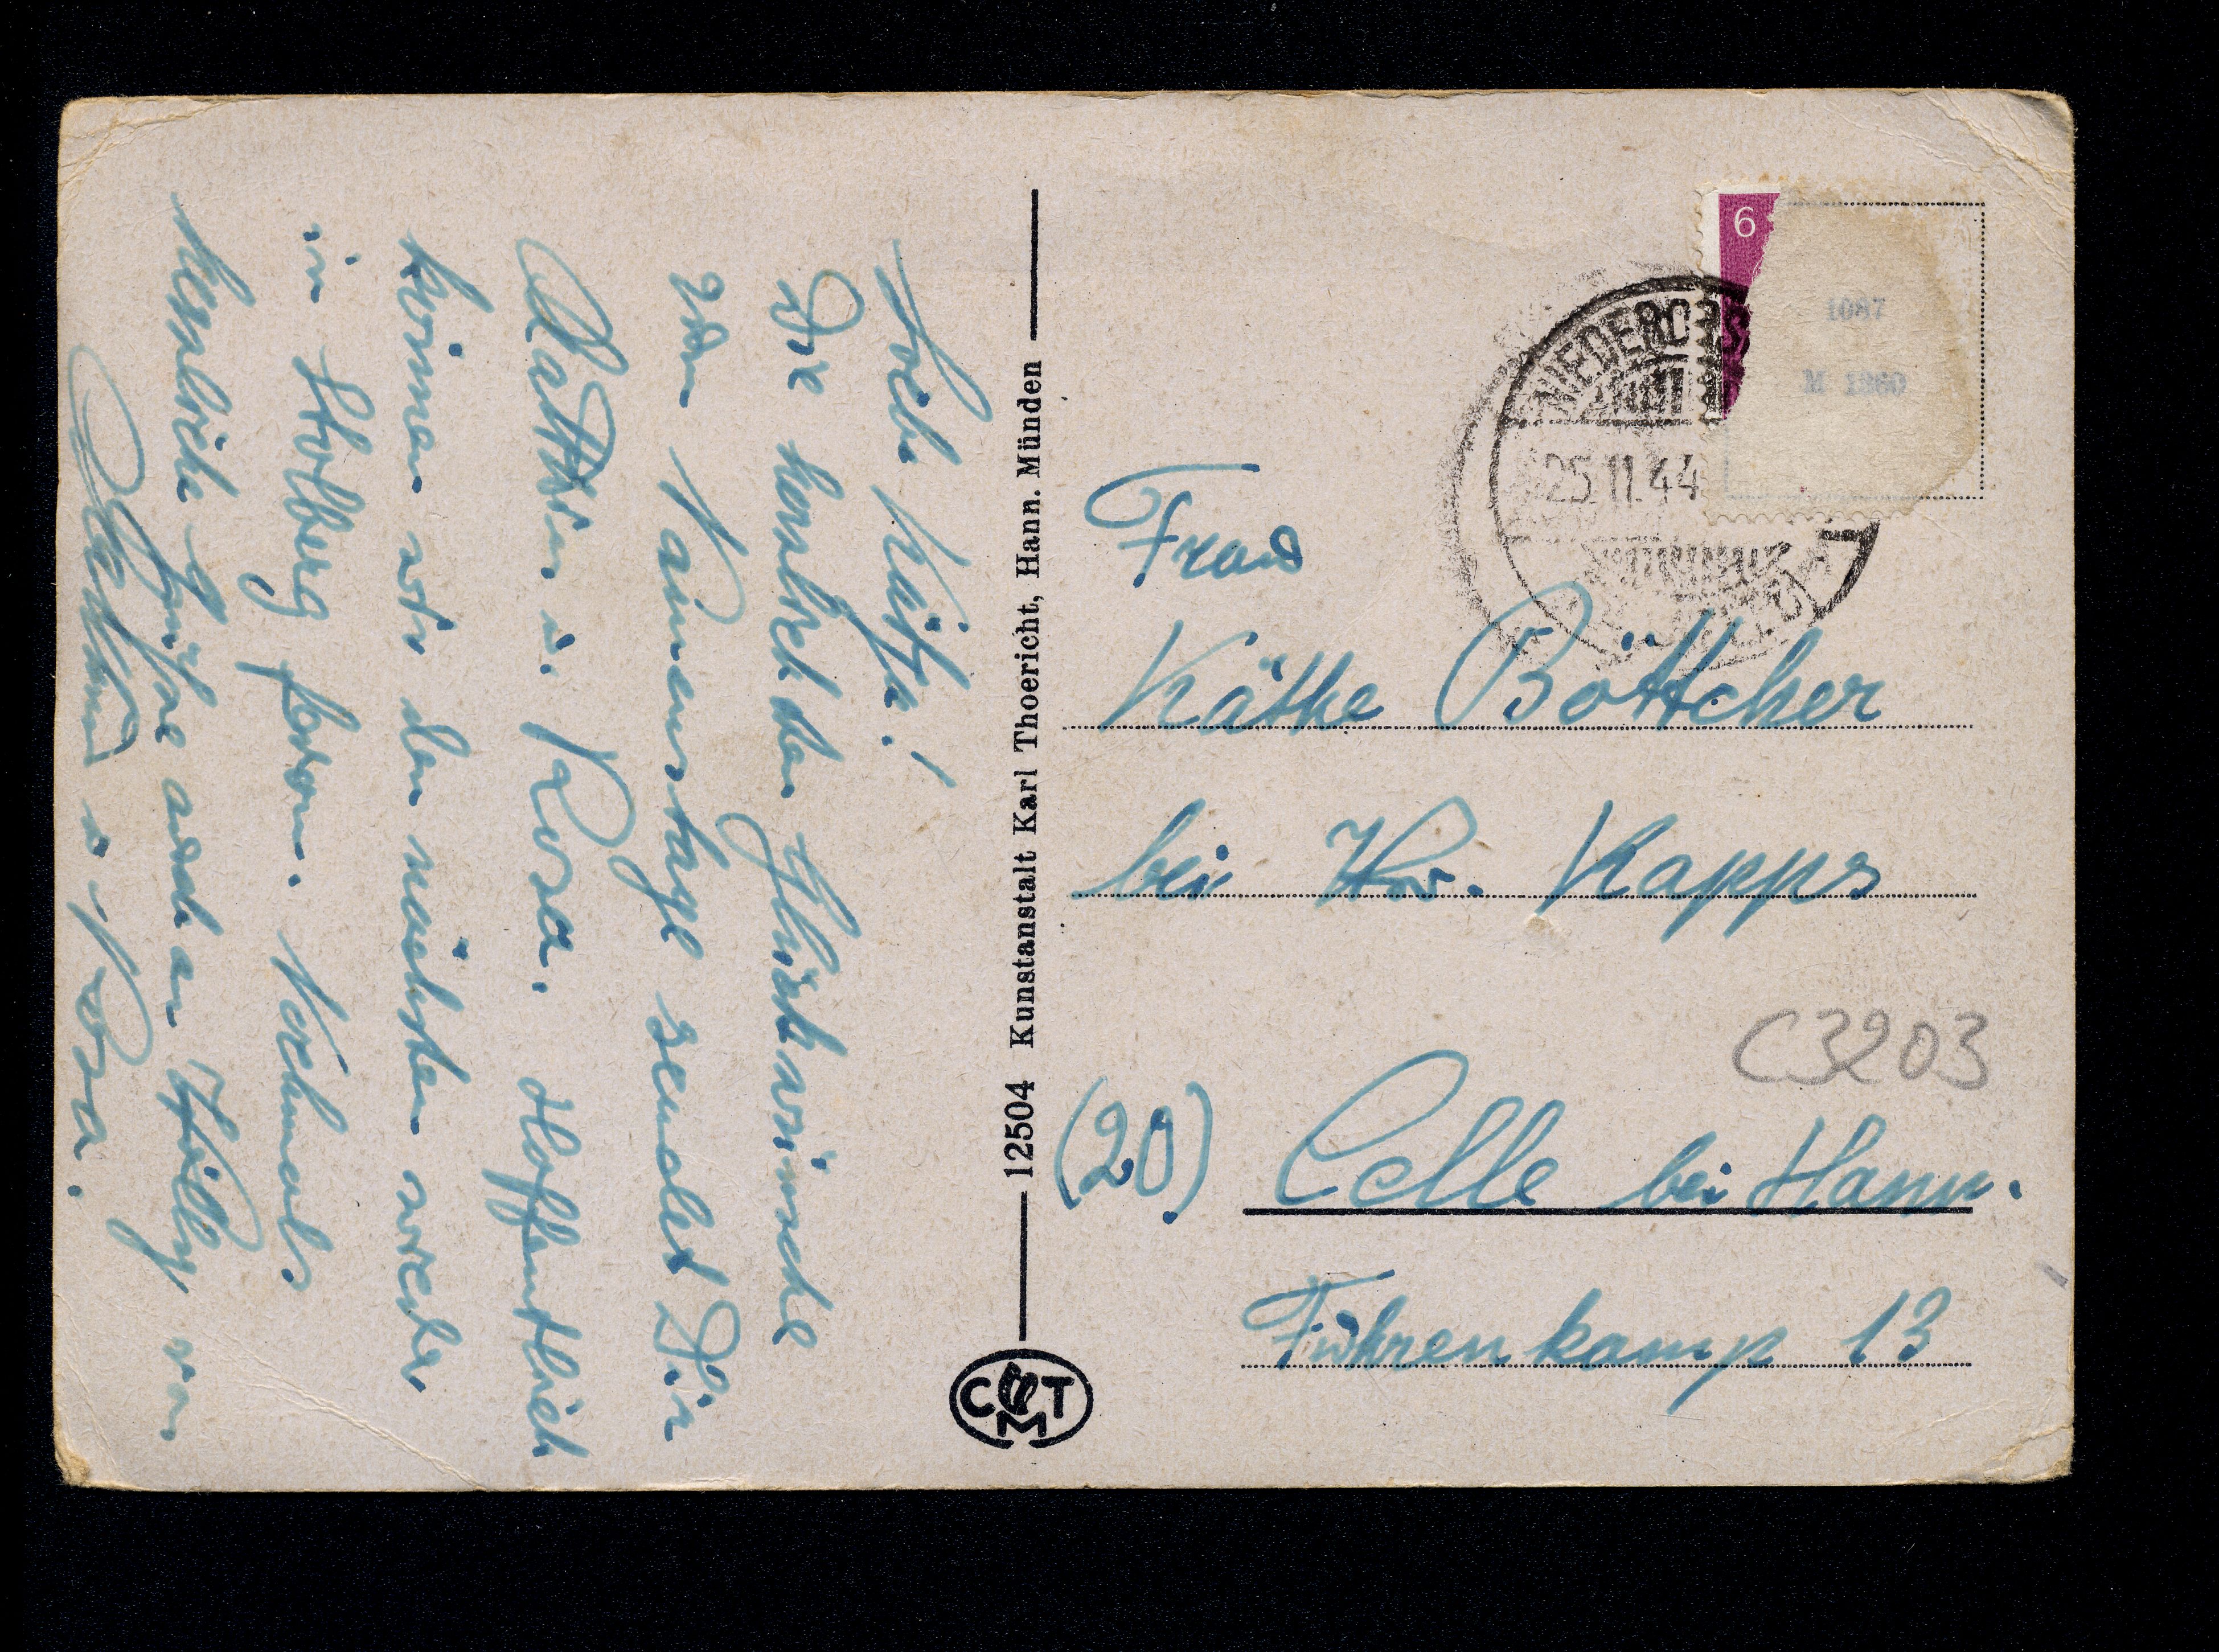 Liebe Käthe!
Die herzlichsten Glückwünsche
zum Namenstage sendet Dir
u. Rosa. Hoffentlich
können wir den nächsten wieder
in Stolberg feiern. Nochmals
herzliche Grüße auch an Willy von
u. Rosa.
12504 Kunstanstalt Karl Thoericht, Hann. Münden
CMT
6
25.11.44
1087
M 1260
Frau
Käthe Böttcher
bei Kapps
C3203
(20) Celle bei Hann.
Fuhrenkamp 13